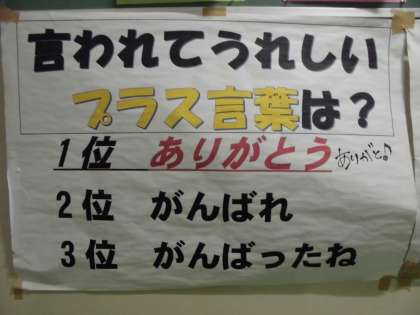 言われてうれしい
プラス言葉は？
1位 ありがとう ありがと♪
2位 がんばれ
3位 がんばったね